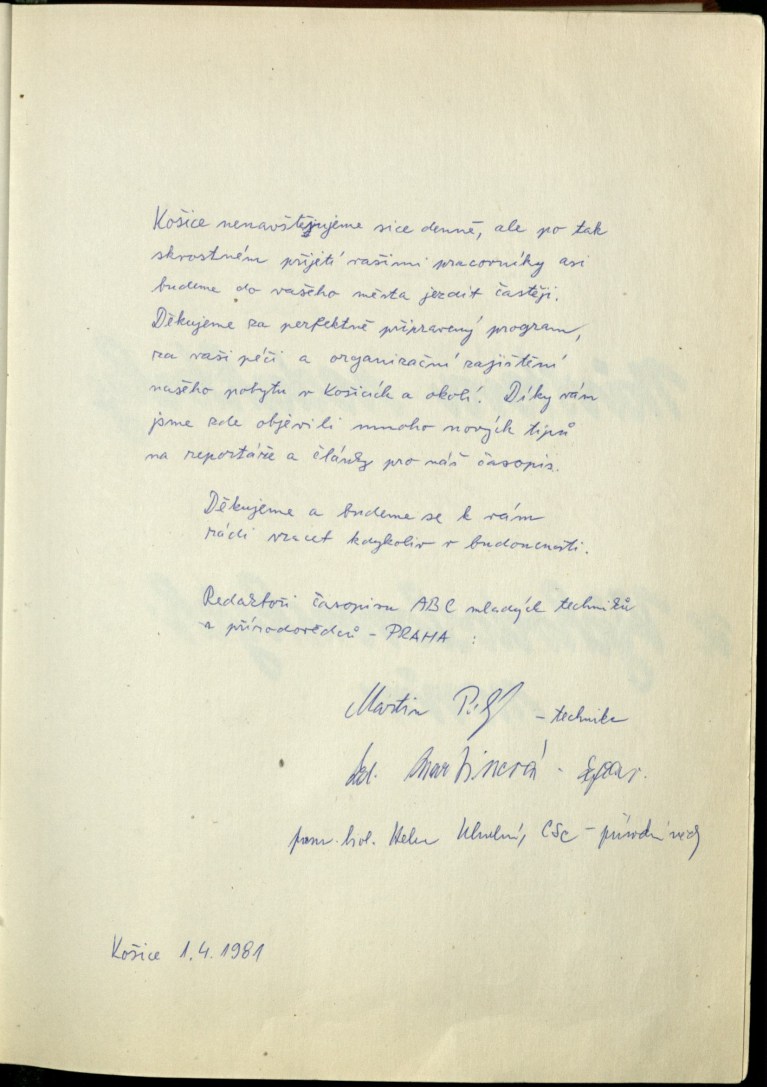 Košice nenavštěvujeme sice denně, ale po tak
skvostném přijetí vašimi pracovníky asi
budeme do vašeho města jezdit častěji.
Děkujeme za perfektně připravený program,
za vaši péči a organizační zajištění
našeho pobytu v Košicích a okolí. Díky vám
jsme zde objevili mnoho nových tipů
na reportáže a články pro náš časopis.
Děkujeme a budeme se k vám
rádi vracet kdykoliv v budoucnosti.
Redaktoři časopisu ABC mladých techniků
a přírodovědců - PRAHA :
Martin - technika
prom. biol. CSc - přírodní vědy
Košice 1.4.1981